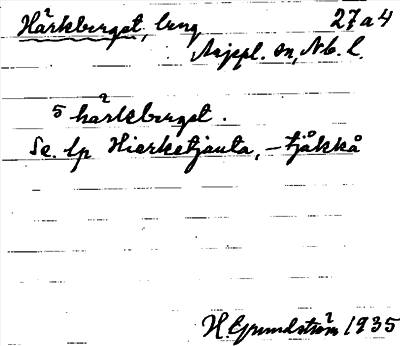 Härkberget, berg 27a4
Arjepl. sn, Nb. l.
5 harkberget.
Se. lp Hierketjauta, -tjåkkå
H. Grundström 1935